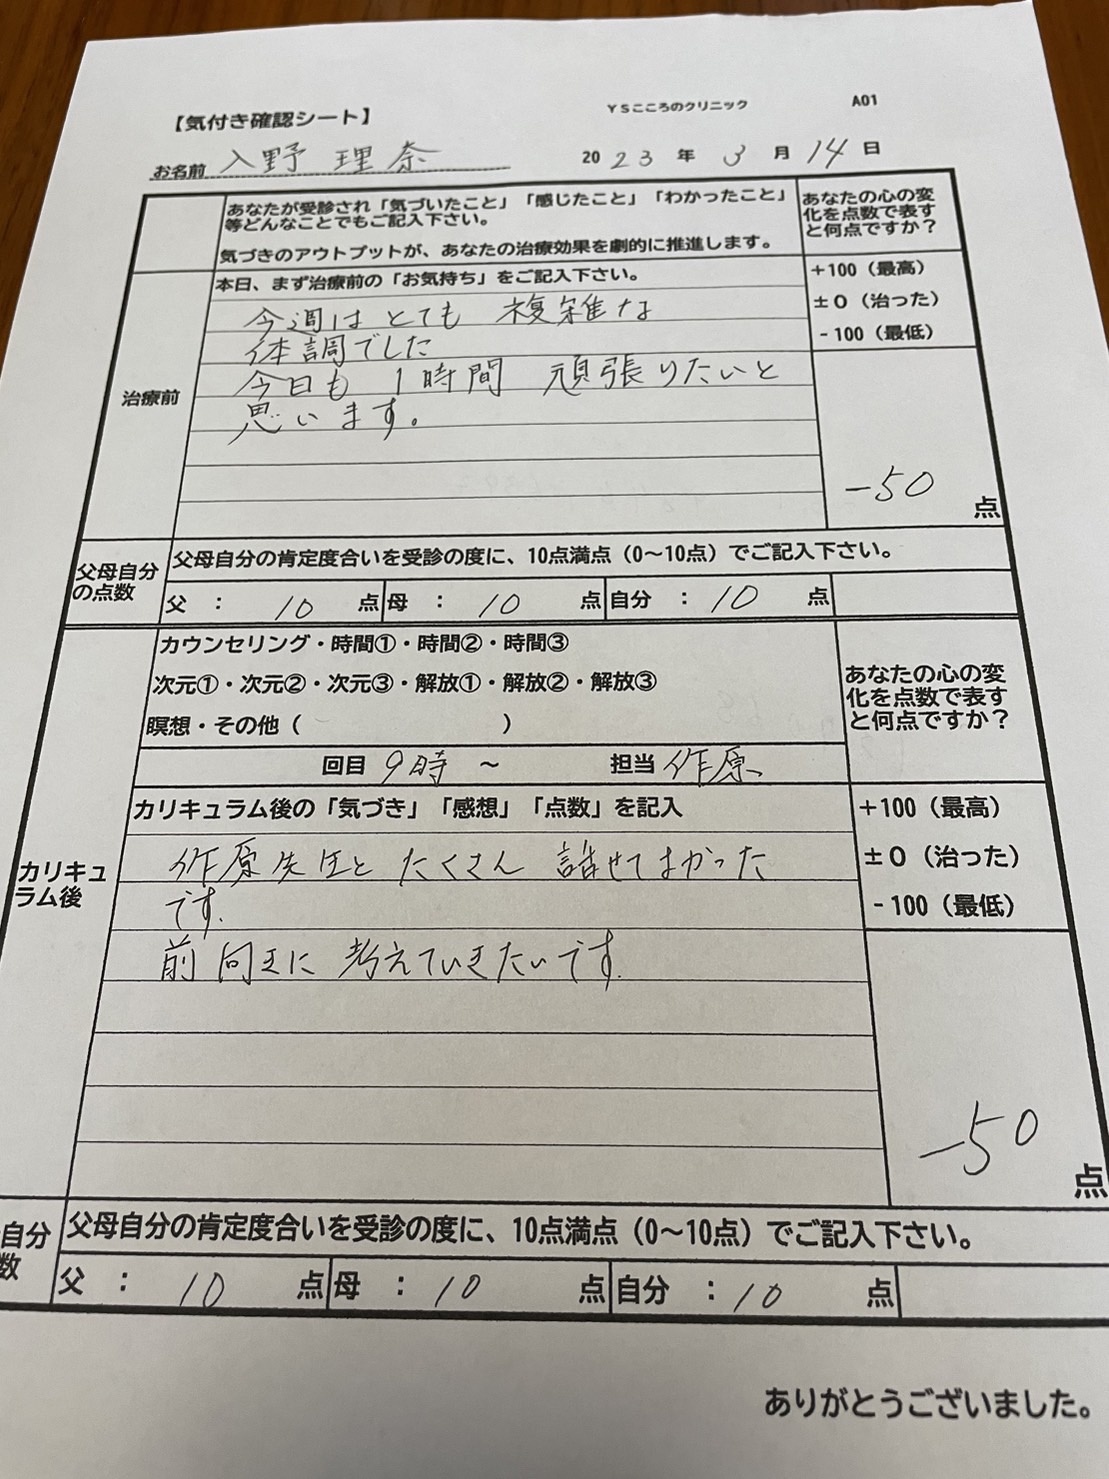 【気付き確認シート】 YSこころのクリニック A01
お名前 入野 理奈 2023年 3月 14日
あなたが受診され「気づいたこと」「感じたこと」「わかったこと」
等どんなことでもご記入下さい。
気づきのアウトプットが、あなたの治療効果を劇的に推進します。
あなたの心の変
化を点数で表す
と何点ですか？
治療前
本日、まず治療前の「お気持ち」をご記入下さい。
今週はとても 複雑な
体調でした
今日も 1時間 頑張りたいと
思います。
+100（最高）
±0（治った）
-100（最低）
-50 点
父母自分
の点数
父母自分の肯定度合いを受診の度に、10点満点（0～10点）でご記入下さい。
父 ： 10 点 母 ： 10 点 自分 ： 10 点
カウンセリング・時間①・時間②・時間③
次元①・次元②・次元③・解放①・解放②・解放③
瞑想・その他（ ）
回目 9時 ～ 担当 作原
あなたの心の変
化を点数で表す
と何点ですか？
カリキュ
ラム後
カリキュラム後の「気づき」「感想」「点数」を記入
作原先生と たくさん 話せてよかった
です.
前向きに 考えていきたいです.
+100（最高）
±0（治った）
-100（最低）
-50 点
自分
数
父母自分の肯定度合いを受診の度に、10点満点（0～10点）でご記入下さい。
父 ： 10 点 母 ： 10 点 自分 ： 10 点
ありがとうございました。